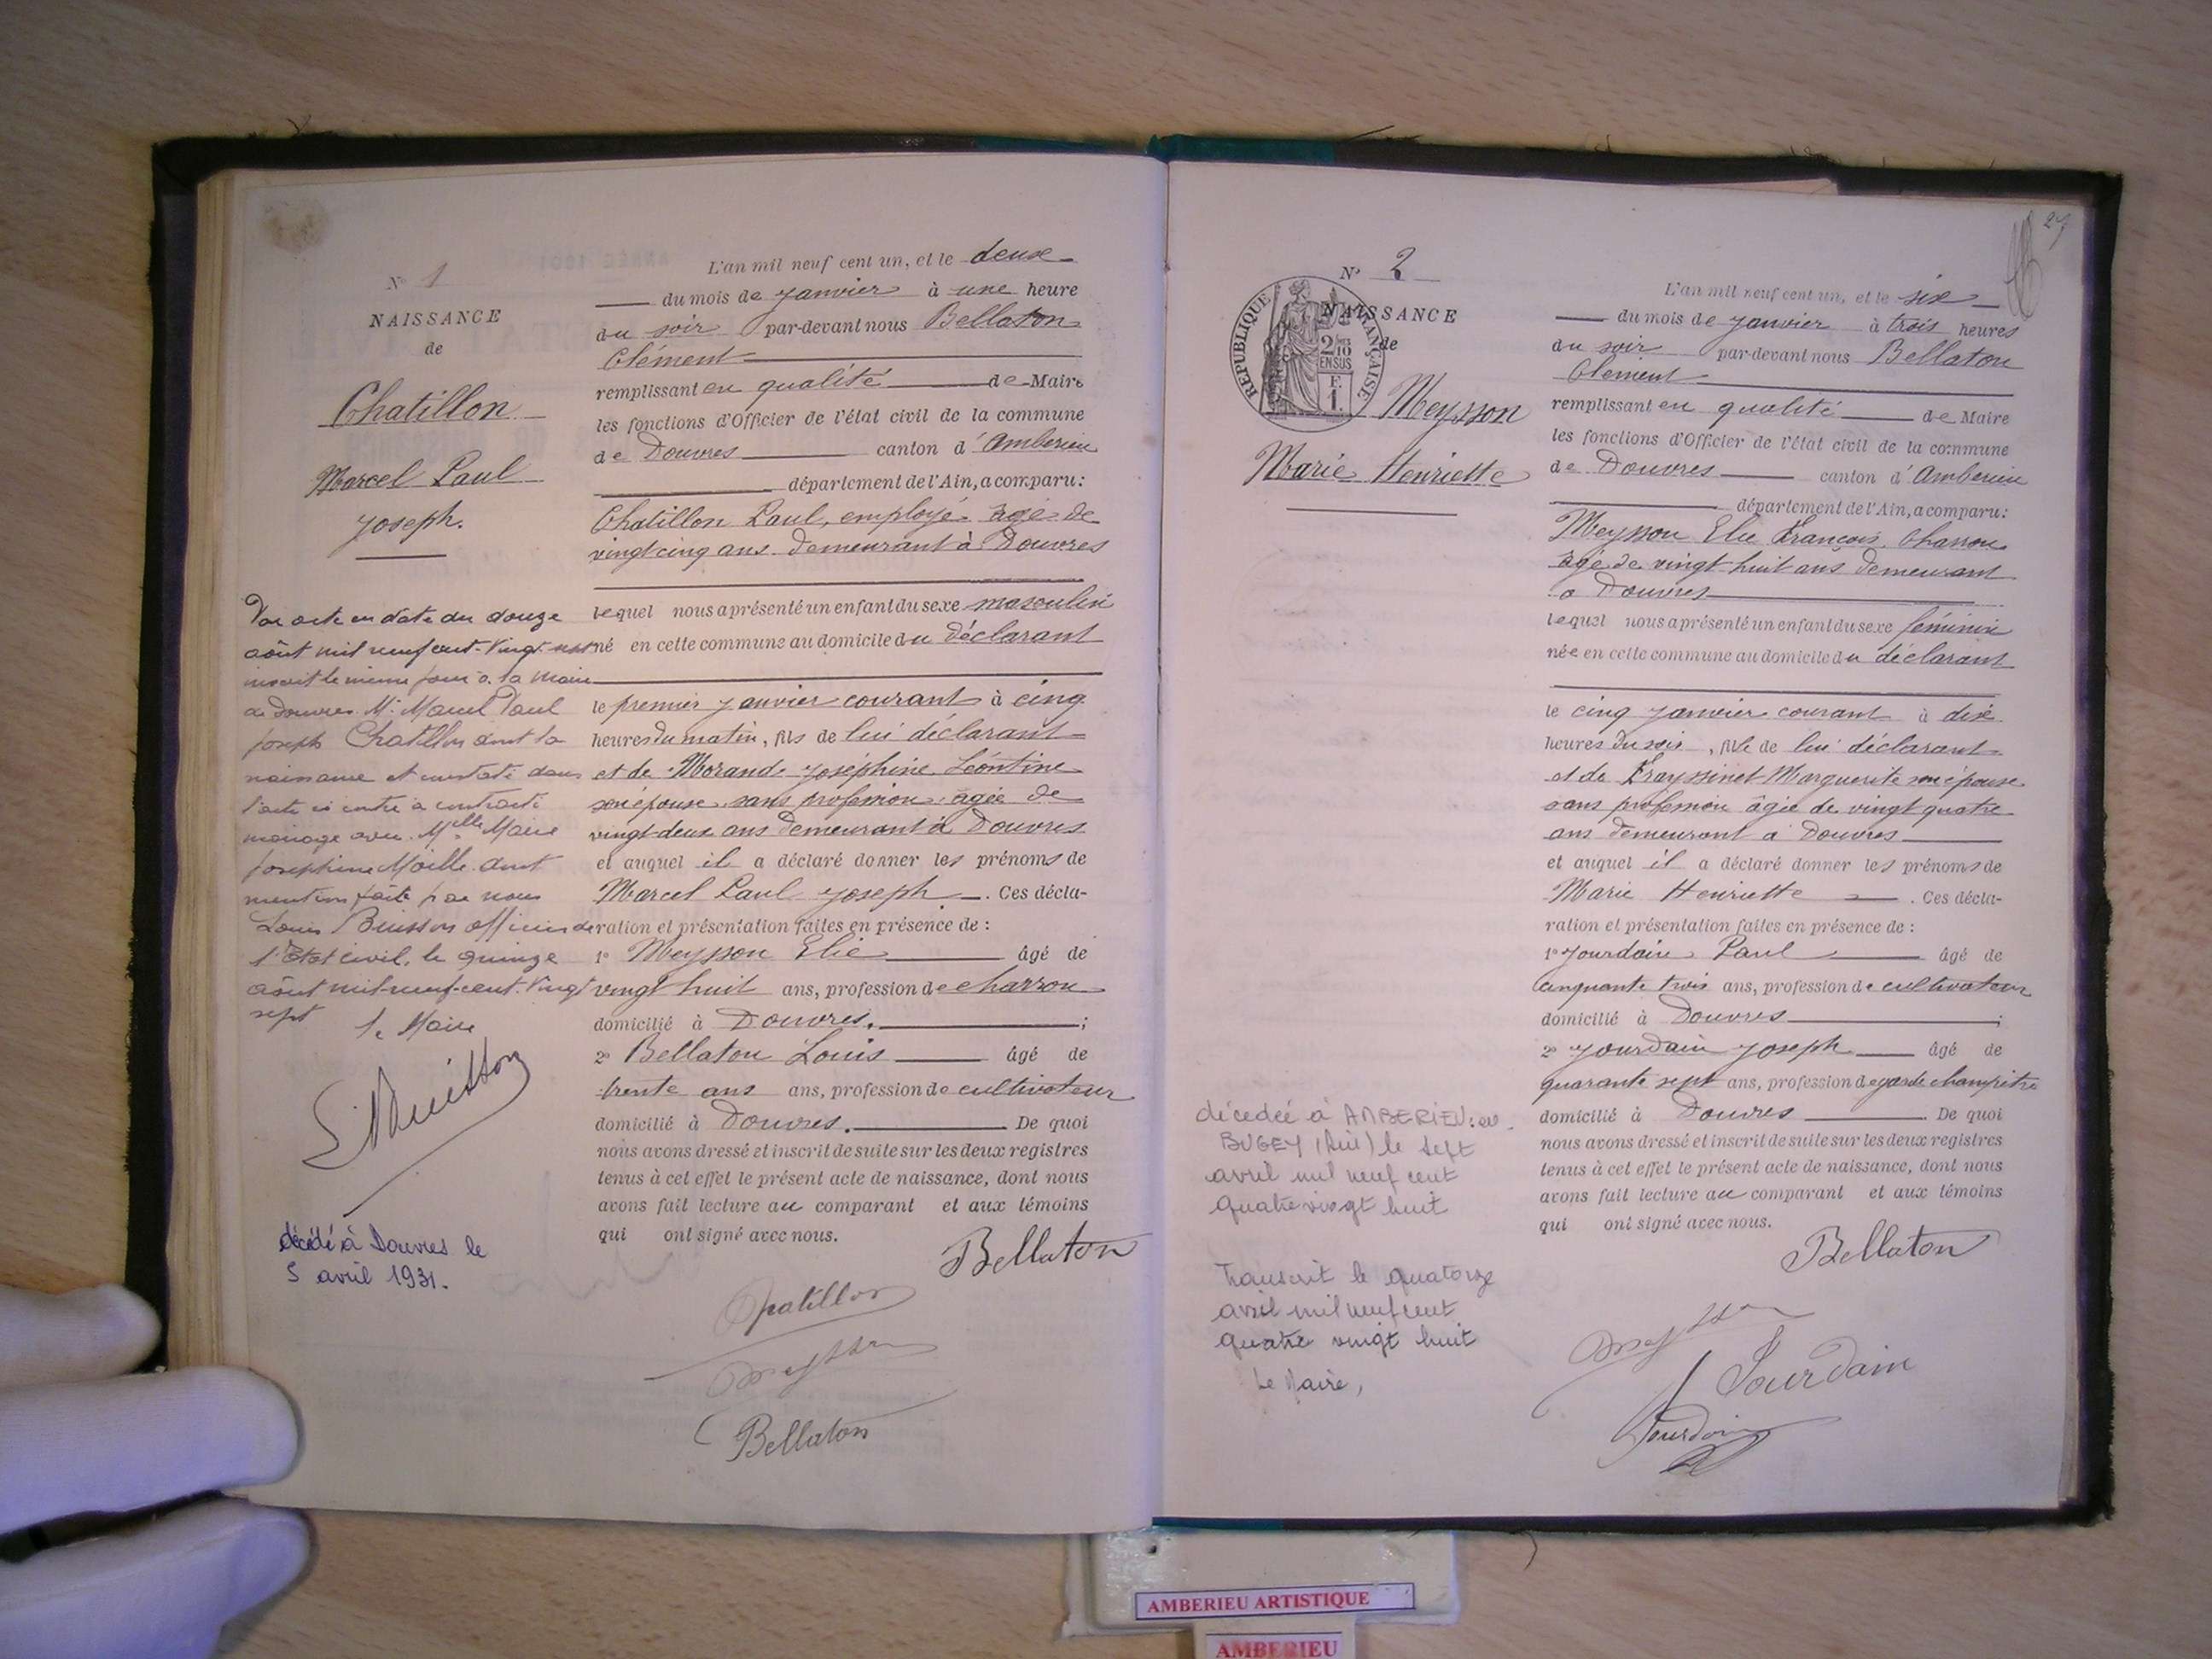 N° 1
NAISSANCE
de
Chatillon
Marcel Paul
Joseph.
Par acte en date du douze
août mil neuf cent vingt-sept
inscrit le même jour à la Mairie
de Douvres M. Marcel Paul
Joseph Chatillon dont la
naissance est constatée dans
l'acte ci contre a contracté
mariage avec Melle Marie
Josephine Moille dont
mention faite par nous
Louis Buisson officier de
l'Etat civil, le quinze
août mil-neuf-cent-vingt
sept
Le Maire
L. Buisson
décédé à Douvres le
5 avril 1931.
L'an mil neuf cent un, et le deux
du mois de janvier à une heure
du soir par-devant nous Bellaton
Clément
remplissant en qualité de Maire
les fonctions d'Officier de l'état civil de la commune
de Douvres canton d'Amberieu
département de l'Ain, a comparu:
Chatillon Paul, employé âgé de
vingt cinq ans demeurant à Douvres
lequel nous a présenté un enfant du sexe masculin
né en cette commune au domicile du déclarant
le premier janvier courant à cinq
heures du matin, fils de lui déclarant
et de Morand Joséphine Léontine
son épouse sans profession âgée de
vingt-deux ans demeurant à Douvres
et auquel il a déclaré donner les prénoms de
Marcel Paul Joseph. Ces décla-
ration et présentation faites en présence de :
1° Meysson Elie âgé de
vingt huit ans, profession de charron
domicilié à Douvres. ;
2° Bellaton Louis âgé de
trente ans ans, profession de cultivateur
domicilié à Douvres. De quoi
nous avons dressé et inscrit de suite sur les deux registres
tenus à cet effet le présent acte de naissance, dont nous
avons fait lecture au comparant et aux témoins
qui ont signé avec nous.
Bellaton
Chatillon
Meysson
Bellaton
27
N° 2
NAISSANCE
de
RÉPUBLIQUE FRANÇAISE
2/10
EN SUS
F.
1.
Meysson
Marie Henriette
décédée à AMBERIEU-en-
BUGEY (Ain) le sept
avril mil neuf cent
quatre vingt huit
Transcrit le quatorze
avril mil neuf cent
quatre vingt huit
Le Maire,
L'an mil neuf cent un, et le six
du mois de janvier à trois heures
du soir par-devant nous Bellaton
Clément
remplissant en qualité de Maire
les fonctions d'Officier de l'état civil de la commune
de Douvres canton d'Amberieu
département de l'Ain, a comparu:
Meysson Elie François, Charron
âgé de vingt huit ans demeurant
à Douvres
lequel nous a présenté un enfant du sexe féminin
née en cette commune au domicile du déclarant
le cinq janvier courant à dix
heures du soir, fille de lui déclarant
et de Frayssinet Marguerite son épouse
sans profession âgée de vingt quatre
ans demeurant à Douvres
et auquel il a déclaré donner les prénoms de
Marie Henriette. Ces décla-
ration et présentation faites en présence de :
1° Jourdain Paul âgé de
cinquante trois ans, profession de cultivateur
domicilié à Douvres ;
2° Jourdain Joseph âgé de
quarante sept ans, profession de garde champêtre
domicilié à Douvres. De quoi
nous avons dressé et inscrit de suite sur les deux registres
tenus à cet effet le présent acte de naissance, dont nous
avons fait lecture au comparant et aux témoins
qui ont signé avec nous.
Bellaton
Meysson
Jourdain
Jourdain
AMBERIEU ARTISTIQUE
AMBERIEU